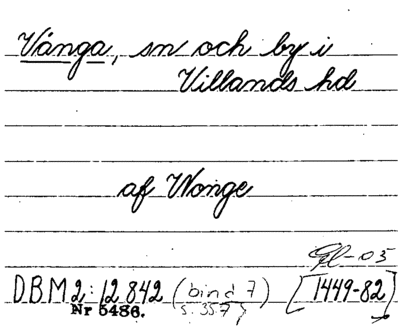 Vånga, sn och by i
Villands hd
af Wonge
-05
D.B.M 2: 12 842 (bind 7) [1449-82]
Nr 5486. s. 357